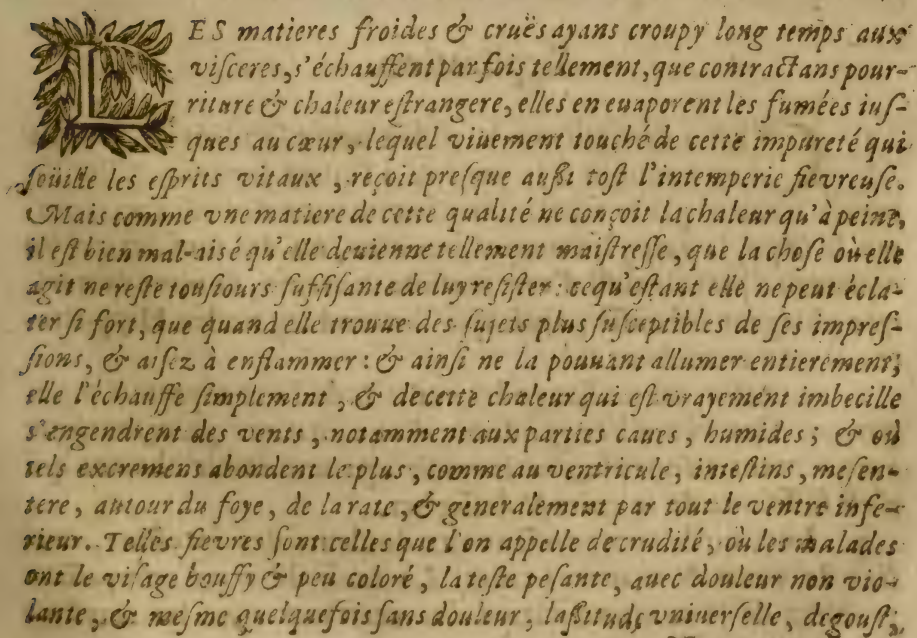 LES matieres froides & cruës ayans croupy long temps aux
visceres, s'échauffent par fois tellement, que contractans pour-
riture & chaleur estrangere, elles en euaporent les fumées ius-
ques au cœur, lequel viuement touché de cette impureté qui
soüille les esprits vitaux, reçoit presque aussi tost l'intemperie fievreuse.
Mais comme vne matiere de cette qualité ne conçoit la chaleur qu'à peine,
il est bien mal-aisé qu'elle deuienne tellement maistresse, que la chose où elle
agit ne reste tousiours suffisante de luy resister: ce qu'estant elle ne peut écla-
ter si fort, que quand elle trouue des sujets plus susceptibles de ses impres-
sions, & aisez à enflammer: & ainsi ne la pouuant allumer entierement;
elle l'échauffe simplement, & de cette chaleur qui est vrayement imbecille
s'engendrent des vents, notamment aux parties caues, humides; & où
tels excremens abondent le plus, comme au ventricule, intestins, mesen-
tere, autour du foye, de la rate, & generalement par tout le ventre infe-
rieur. Telles fievres sont celles que l'on appelle de crudité, où les malades
ont le visage bouffy & peu coloré, la teste pesante, auec douleur non vio-
lante, & mesme quelquefois sans douleur, lassitude vniuerselle, degoust,